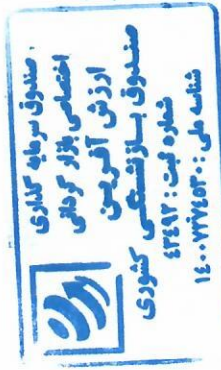 صندوق سرمایه گذاری
اختصاصی بازار گردانی
ارزش آفرین
صندوق بازنشستگی کشوری
شماره ثبت : ۴۳۴۹۲
شناسه ملی : ۱۴۰۰۷۷۷۶۵۳۰